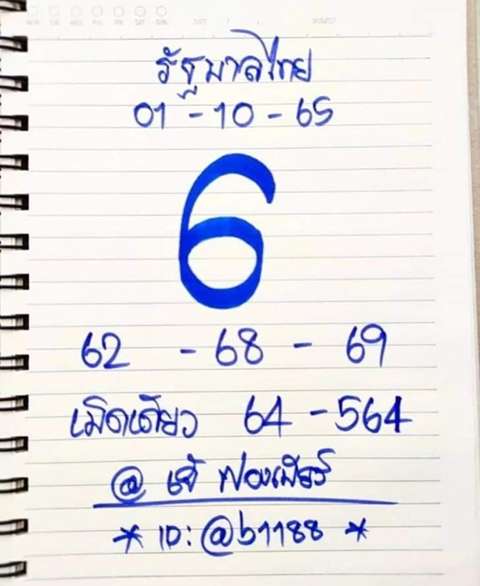 รัฐบาลไทย
01 - 10 - 65
6
62 - 68 - 69
เม็ดเดียว 64 - 564
@ เจ๊ ฟองเบียร์
* ID: @b1188 *